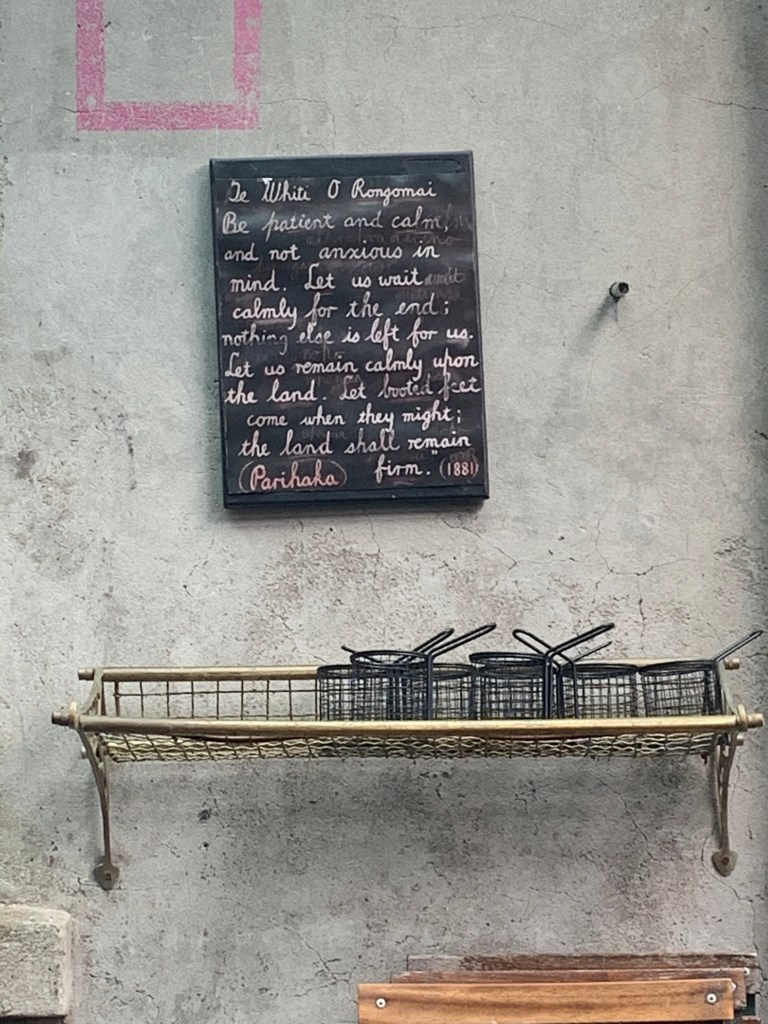 Te Whiti O Rongomai
Be patient and calm,
and not anxious in
mind. Let us wait
calmly for the end;
nothing else is left for us.
Let us remain calmly upon
the land. Let booted feet
come when they might;
the land shall remain
(Parihaka) firm." (1881)